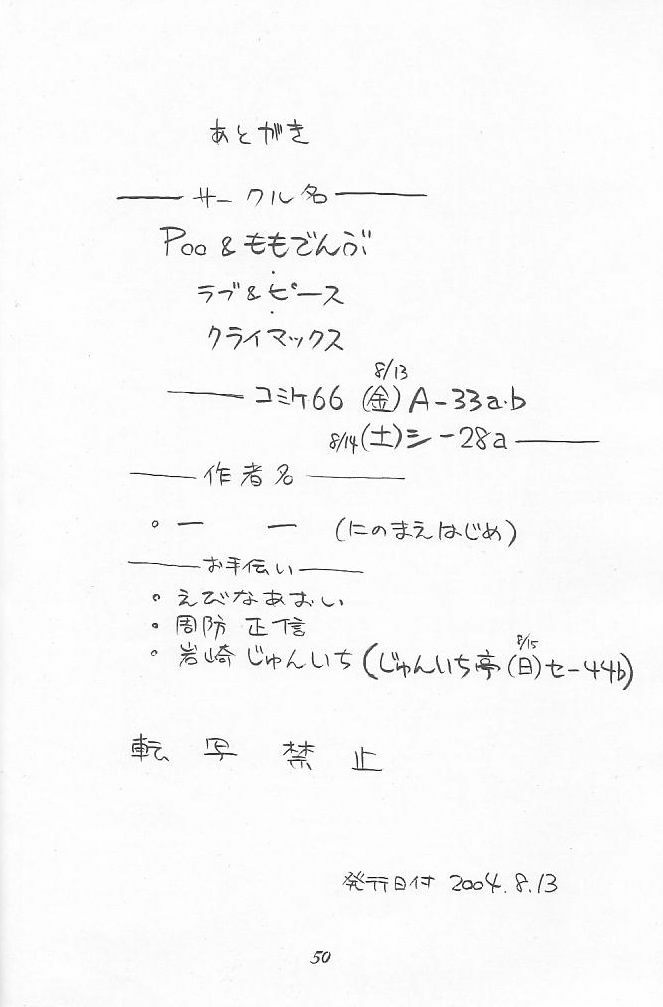 あとがき
サークル名
Poo & ももでんぶ
ラブ&ピース
クライマックス
8/13
コミケ66 (金) A-33a.b
8/14(土)シ-28a
作者名
・一 一 (にのまえはじめ)
お手伝い
・えびなあおい
・周防 正信
8/15
・岩崎 じゅんいち(じゅんいち亭(日)セ-44b)
転写禁止
発行日付 2004.8.13
50